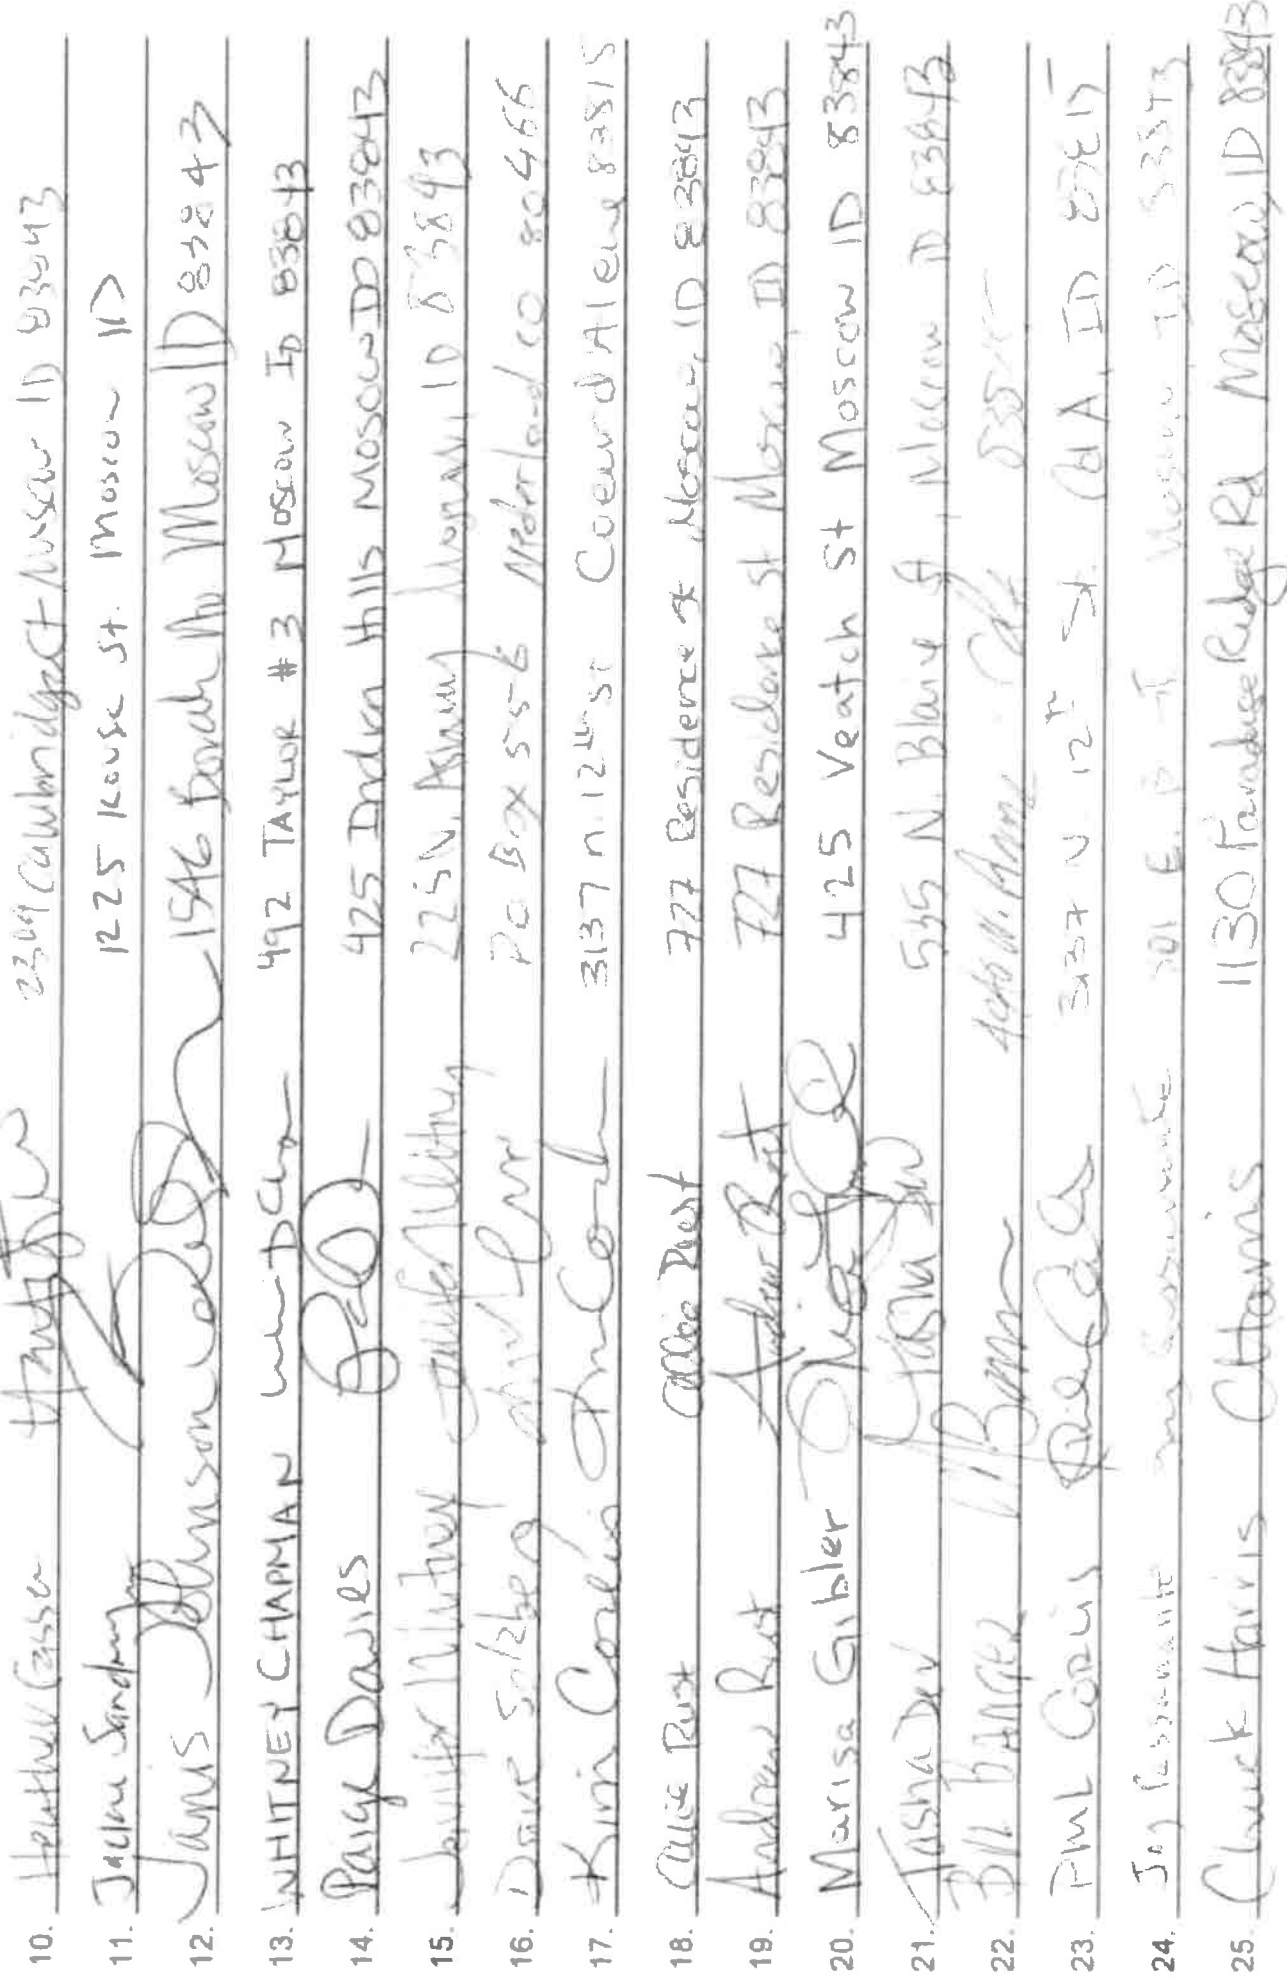 10. Heather Gasser 2309 Cambridge Ct Moscow ID 83843
11. Jaclni Sand 1225 Kouse St. Moscow ID
12. Janis Johnson 1546 Borah Av. Moscow ID 83843
13. WHITNEY CHAPMAN 492 TAYLOR #3 MOSCOW ID 83843
14. Paige Davies 425 Indian Hills Moscow ID 83843
15. Jennifer Whitney Jennifer Whitney 225 N. Asbury Moscow ID 83843
16. Dave Salzberg PO Box 556 Nederland CO 80466
17. Kim Corelis 3137 n. 12th St Coeur d Alene 83815
18. Callie Rust Callie Rust 777 Residence St Moscow, ID 83843
19. Andrew Rust Andrew Rust 727 Residence St Moscow ID 83843
20. Marisa Gibler 425 Veatch St Moscow ID 83843
21. Tasha Dev 535 N. Blaine St, Moscow ID 83843
22. Bill
23. 3137 N 12th St. CdA, ID 83815
24. Jay E. Moscow ID 83843
25. Chuck Harris C Harris 1130 Paradise Ridge Rd Moscow, ID 83843